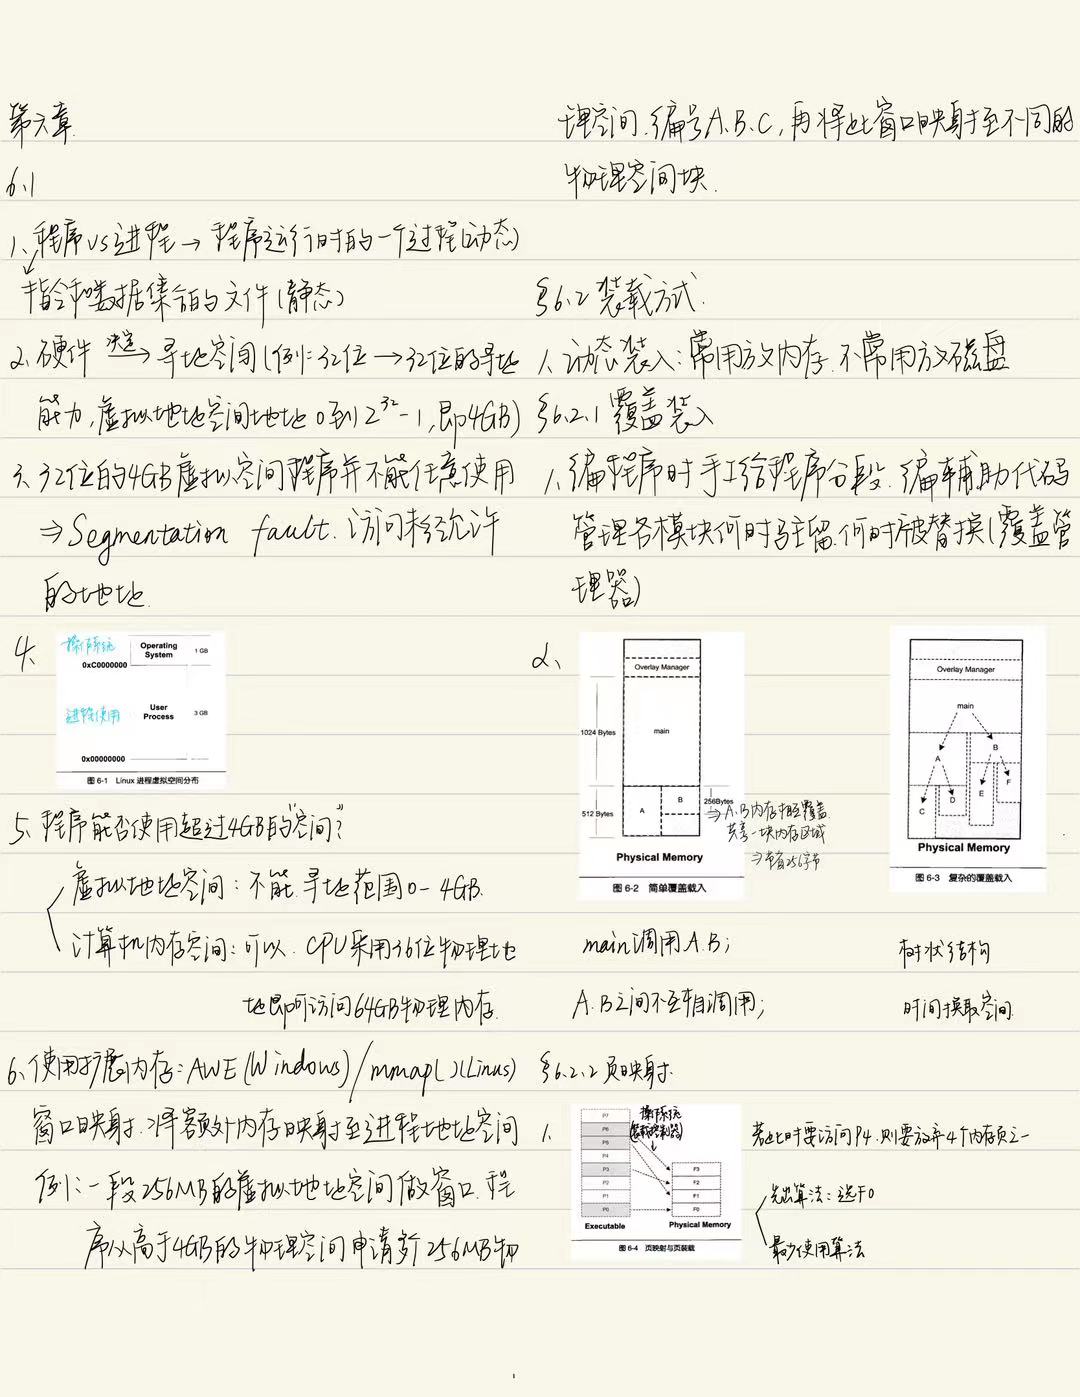 第六章.
6.1
1、程序vs进程→程序运行时的一个过程(动态)
指令和数据集合的文件(静态)
2、硬件 决定→ 寻地空间(例:32位→32位的寻地
能力,虚拟地址空间地址0到2³²-1,即4GB)
3、32位的4GB虚拟空间程序并不能任意使用
⇒Segmentation fault.访问未经允许
的地址.
4、
操作系统
Operating
System
1 GB
0xC0000000
进程使用
User
Process
3 GB
0x00000000
图 6-1 Linux 进程虚拟空间分布
5、程序能否使用超过4GB的"空间"?
虚拟地址空间:不能.寻地范围0-4GB.
计算机内存空间:可以.CPU采用36位物理地
址即可访问64GB物理内存.
6、使用扩展内存:AWE(Windows)/mmap()(Linus)
窗口映射.将额外内存映射至进程地址空间
例:一段256MB的虚拟地址空间做窗口.程
序从高于4GB的物理空间申请多个256MB物
理空间.编号A.B.C,再将此窗口映射至不同的
物理空间块.
§6.2 装载方式.
1、动态装入:常用放内存.不常用放磁盘
§6.2.1 覆盖装入
1、编程序时手工给程序分段.编辅助代码
管理各模块何时驻留.何时被替换(覆盖管
理器)
2、
Overlay Manager
1024 Bytes
main
512 Bytes
A
B
256Bytes
⇒A.B内存相互覆盖.
共享一块内存区域
⇒节省256字节
Physical Memory
图 6-2 简单覆盖载入
Overlay Manager
main
A
B
C
D
E
F
Physical Memory
图 6-3 复杂的覆盖载入
main调用A.B;
A.B之间不互相调用;
树状结构
时间换取空间.
§6.2.2 页映射.
1.
P7
P6
P5
P4
P3
P2
P1
P0
操作系统
(装载控制器)
F3
F2
F1
F0
Executable
Physical Memory
图 6-4 页映射与页装载
若此时要访问P4.则要放弃4个内存页之一
先出算法:选F0
最少使用算法